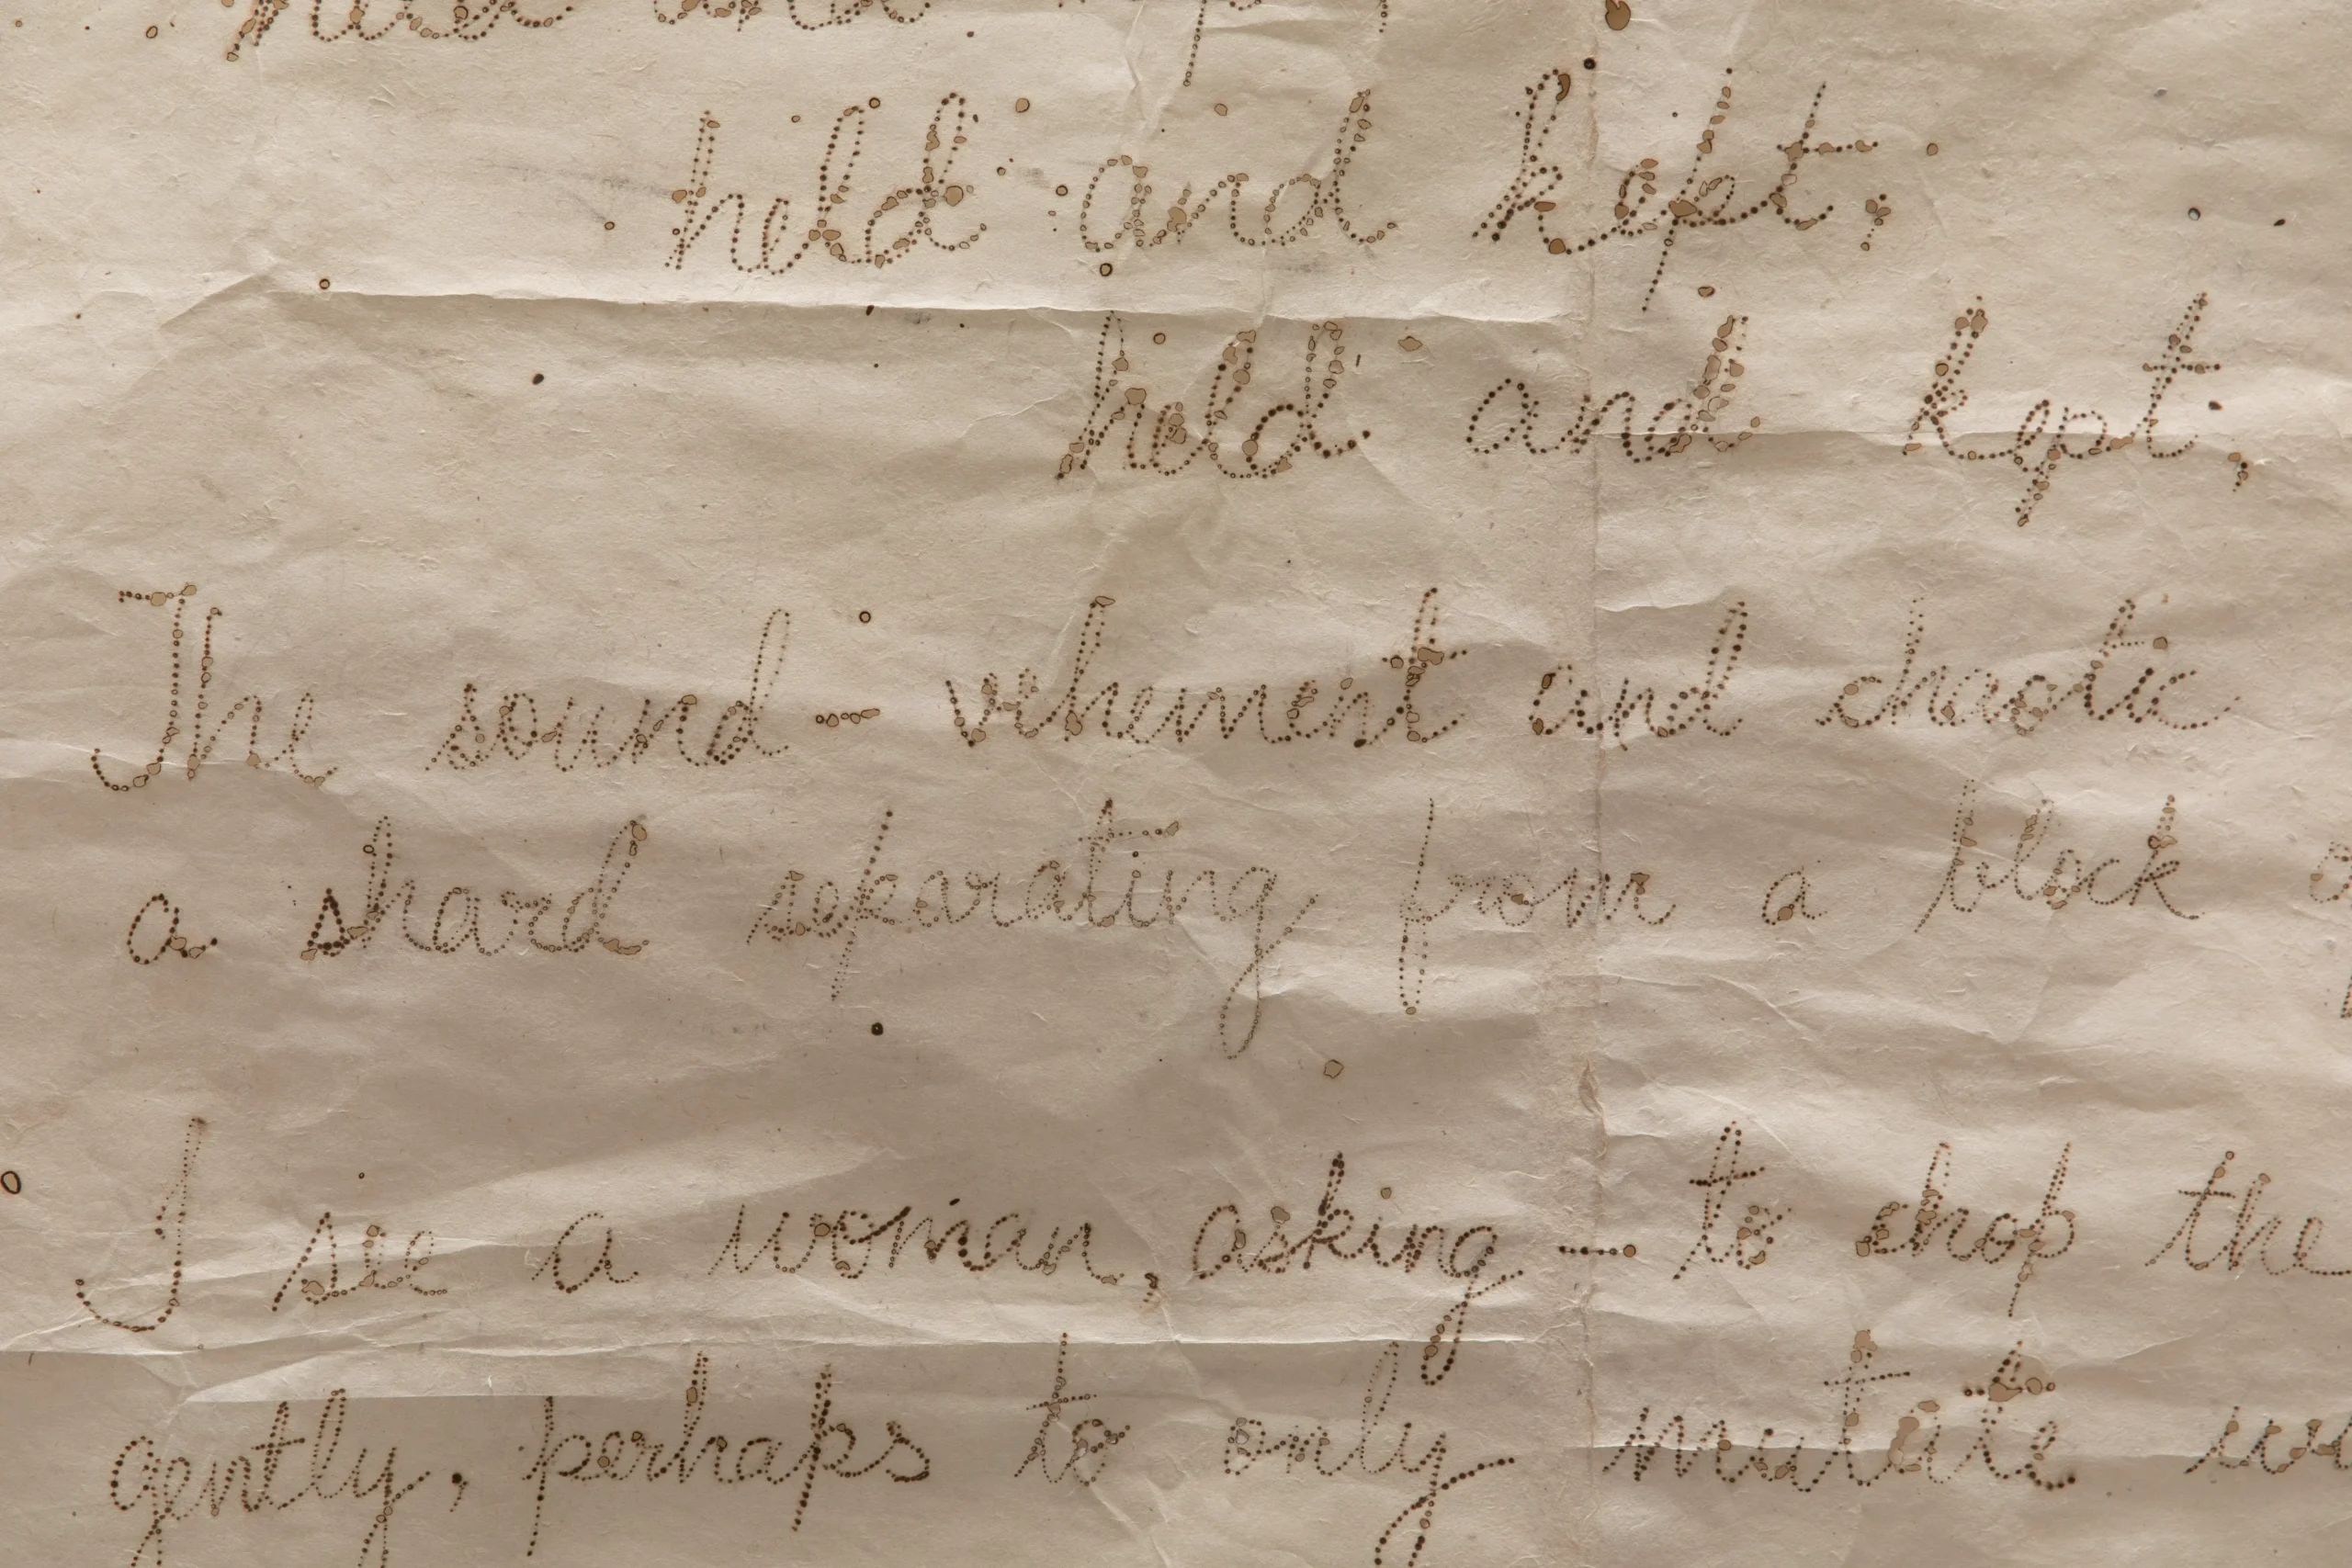 held and kept,
held and kept,
The sound — vehement and chaotic
a shard separating from a block
I see a woman, asking — to chop the
gently, perhaps to only mutate